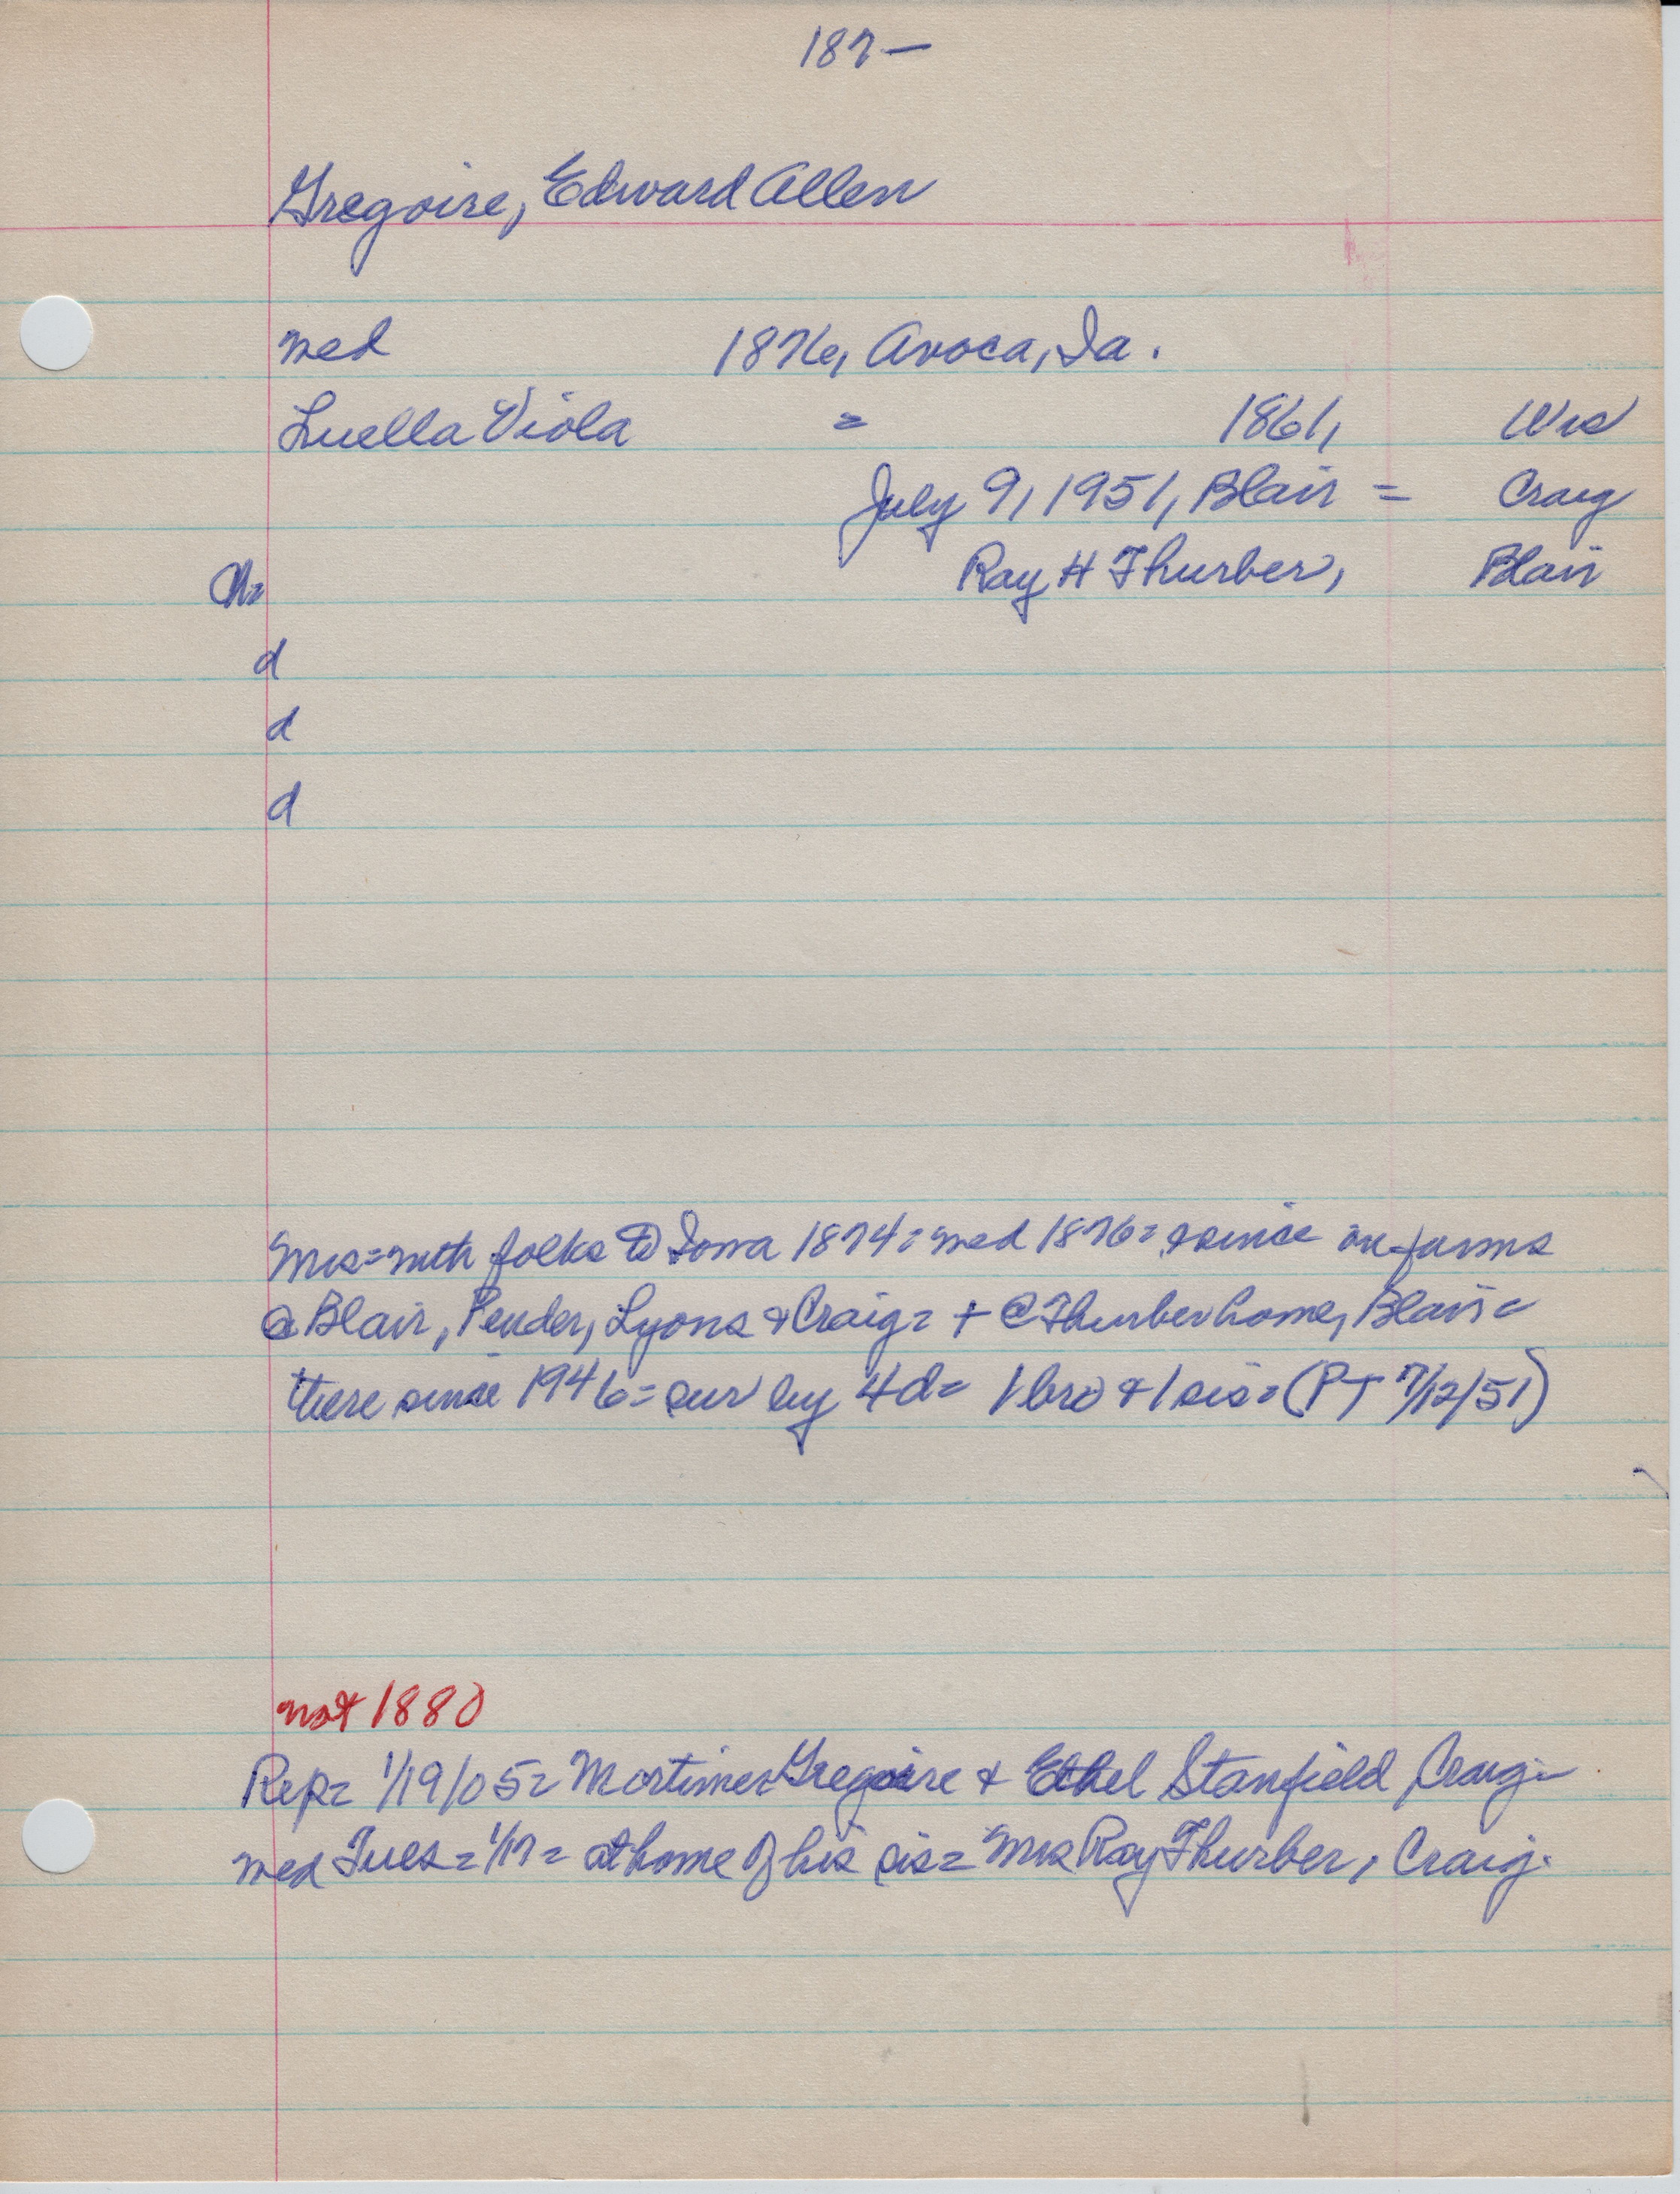 187—
Gregoire, Edward Allen
med 1876, Avoca, Ia.
Luella Viola = 1861, Wis
July 9, 1951, Blair = Craig
Ch= Ray H Thurber, Blair
d
d
d
Mrs = with folks to Iowa 1874 = med 1876 = since on farms
@ Blair, Pender, Lyons & Craig = + @ Thurber home, Blair =
there since 1946 = sur by 4d = 1 bro & 1 sis = (PT 7/12/51)
not 1880
Rep = 1/19/05 = Mortimer Gregoire & Ethel Stanfield Craig =
med Tues = 1/17 = at home of his sis = Mrs Ray Thurber, Craig.